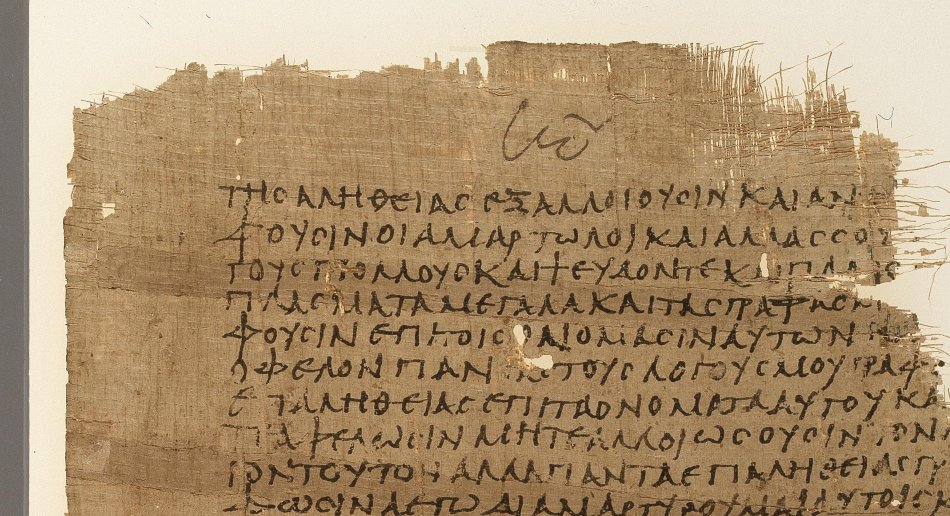 ΤΗС ΑΛΗΘΕΙΑС ΕΞΑΛΛΟΙΟΥСΙΝ ΚΑΙ ΑΝ
ΦΟΥСΙΝ ΟΙ ΑΜΑΡΤΩΛΟΙ ΚΑΙ ΑΛΛΑССΟΥ
ΤΟΥС ΠΟΛΛΟΥС ΚΑΙ ΨΕΥΔΟΝΤΕ ΚΑΙ ΠΛΑ
ΠΛΑСΜΑΤΑ ΜΕΓΑΛΑ ΚΑΙ ΤΑС ΓΡΑΦΑС
ΦΟΥСΙΝ ΕΠΙ ΤΟΙС ΟΝΟΜΑСΙΝ ΑΥΤΩΝ
ΟΦΕΛΟΝ ΠΑΝΤΑС ΤΟΥС ΛΟΓΟΥС ΜΟΥ ΓΡΑΦ
ΕΠ ΑΛΗΘΕΙΑС ΕΠΙ ΤΑ ΟΝΟΜΑΤΑ ΑΥΤΟΥ ΚΑ
ΑΦΕΛΩСΙΝ ΜΗΤΕ ΑΛΛΟΙΩСΟΥСΙΝ ΤΩΝ
ΓΩΝ ΤΟΥΤΩΝ ΑΛΛΑ ΠΑΝΤΑ ΕΠ ΑΛΗΘΕΙΑС ΓΡ
ΦΩСΙΝ Α ΕΓΩ ΔΙΑΜΑΡΤΥΡΟΥΜΑΙ ΑΥΤΟΙС